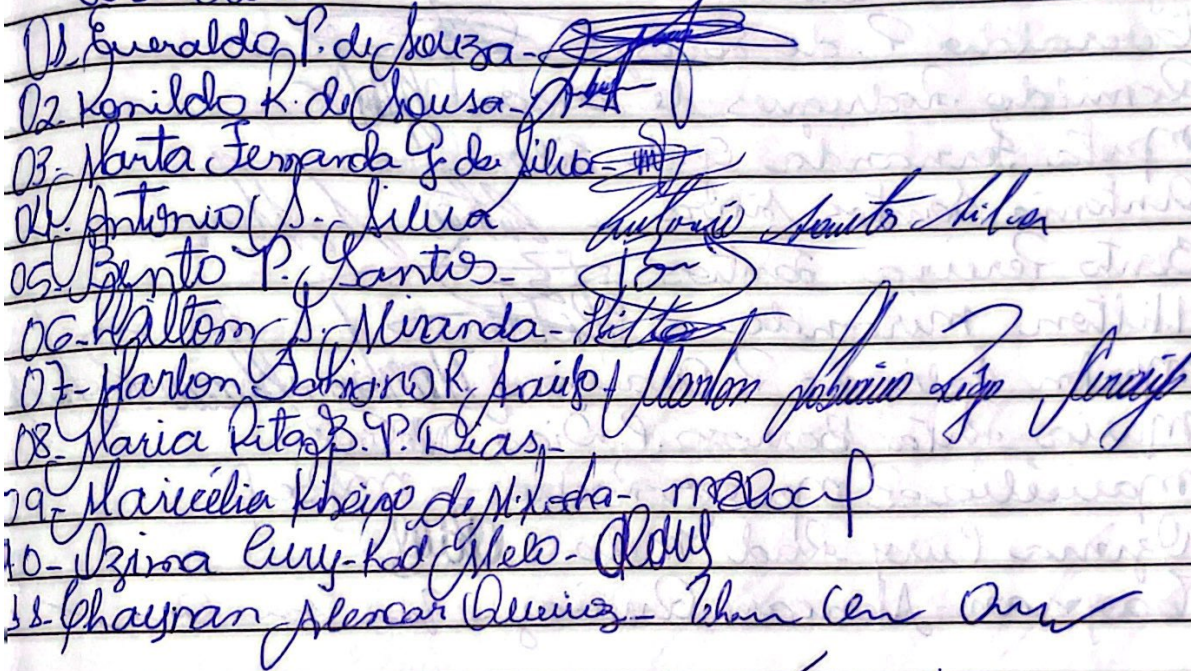 01- Eueraldo P. de Souza-
02- Romildo R. de Sousa-
03- Marta Fernanda G. da Silva-
04- Antonio S. Silva Antonio Santos Silva
05- Bento P. Santos-
06- Hailtom S. Miranda- Hilto
07- Marlon Fabiano R. Araújo Marlon Fabiano Rigo Araujo
08- Maria Rita B. P. Dias-
09- Maricélia Ribeiro de M. Rocha-
10- Ozima Cury-Rad Melo-
11- Thaynan Alencar Queiroz-